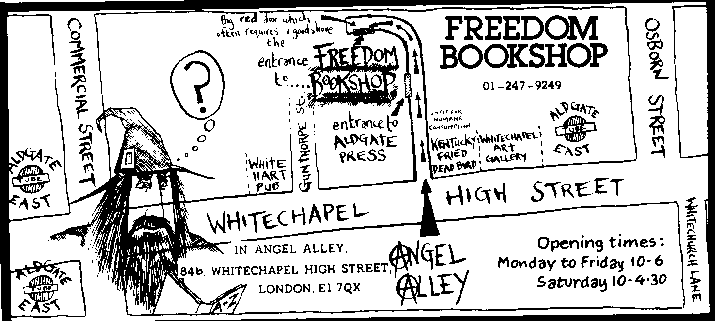 Big red door which
often requires a good shove
the
entrance
to....
FREEDOM
BOOKSHOP
FREEDOM
BOOKSHOP
01-247-9249
COMMERCIAL STREET
OSBORN STREET
?
entrance to
ALDGATE
PRESS
GUNTHORPE ST.
WHITE
HART
PUB
HUMANE
CONSUMPTION
KENTUCKY
FRIED
DEAD BIRD
WHITECHAPEL
ART
GALLERY
ALDGATE
TUBE
EAST
ALDGATE
TUBE
EAST
WHITECHAPEL HIGH STREET
WHITECHURCH LANE
ALDGATE
TUBE
EAST
IN ANGEL ALLEY,
84b, WHITECHAPEL HIGH STREET,
LONDON, E1 7QX
A-Z
ANGEL
ALLEY
Opening times:
Monday to Friday 10-6
Saturday 10-4.30